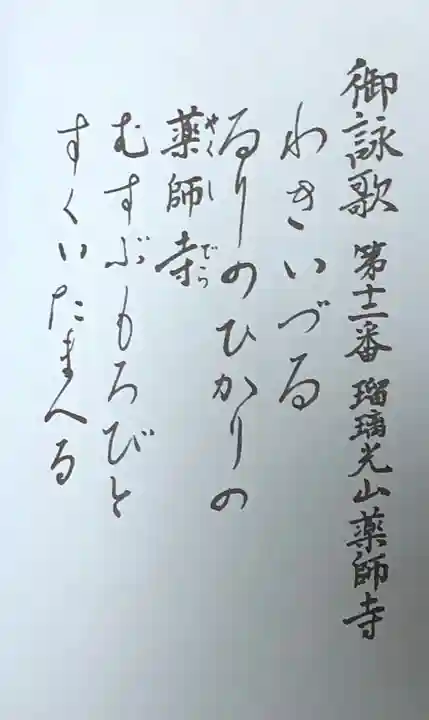 御詠歌 第十二番 瑠璃光山薬師寺
わきいづる
るりのひかりの
薬師寺
やくしでら
むすぶもろびと
すくいたまへる